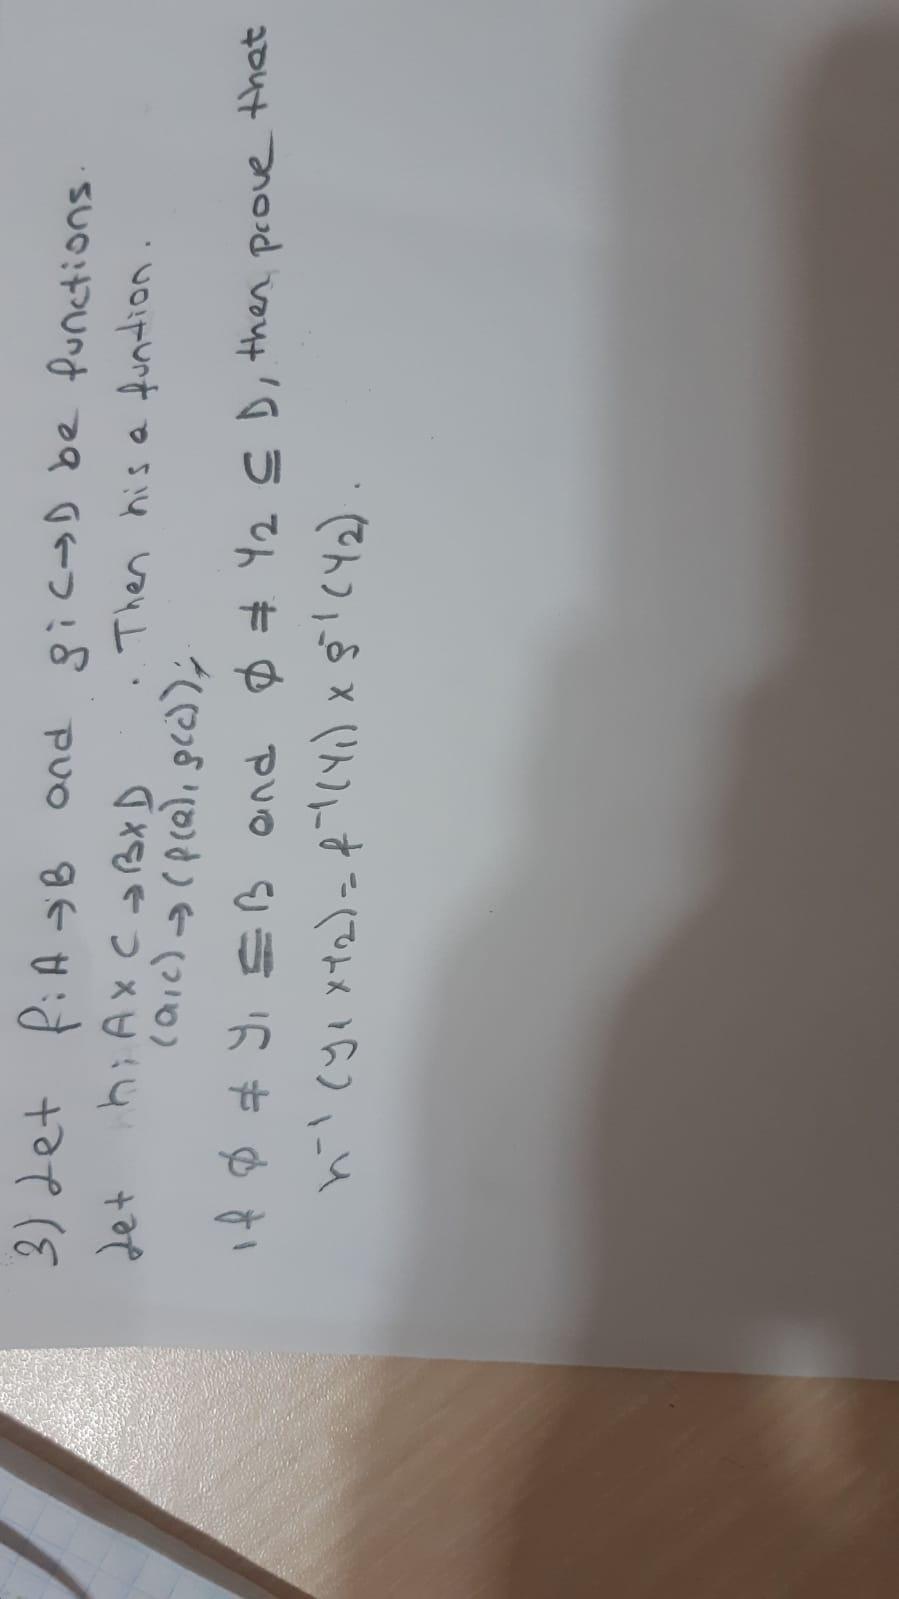 3) Let f: A → B and g: C → D be functions.
Let h: A x C → B x D . Then h is a funtion.
(a,c) → (f(a), g(c));
If ∅ ≠ y₁ ⊆ B and ∅ ≠ y₂ ⊆ D, then prove that
h⁻¹(y₁ x y₂) = f⁻¹(y₁) x g⁻¹(y₂).